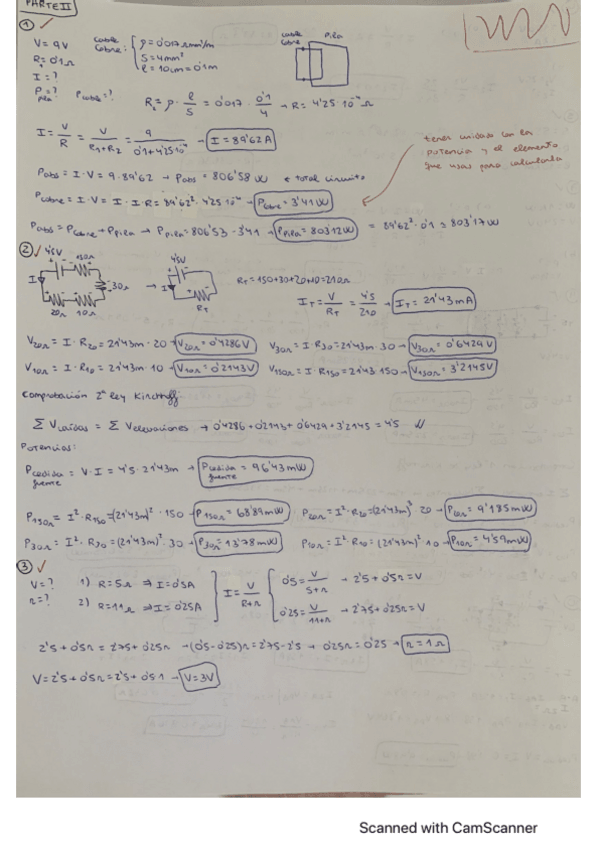 PARTE II
① ✓
V = 9V
R₁ = 0'1Ω
I = ?
P pila = ? P cable = ?
cable cobre: { ρ = 0'017 Ωmm²/m
S = 4mm²
l = 10cm = 0'1m
cable cobre Pila
R₂ = ρ · l/S = 0'017 · 0'1/4 → R = 4'25·10⁻⁴Ω
I = V/R = V/(R₁+R₂) = 9/(0'1+4'25·10⁻⁴) → I = 89'62A
tened cuidado con la
potencia y el elemento
que usas para calcularla
Pabs = I·V = 9·89'62 → Pabs = 806'58W ← total circuito
Pcobre = I·V = I·I·R = 89'62²·4'25·10⁻⁴ → Pcobre = 3'41W
Pabs = Pcobre + Ppila → Ppila = 806'53 - 3'41 → Ppila = 803'12W = 89'62²·0'1 = 803'17W
② ✓
4'5V 150Ω
I 30Ω
20Ω 10Ω
→
4'5V
I
RT
RT = 150+30+20+10 = 210Ω
IT = V/RT = 4'5/210 → IT = 21'43mA
V20Ω = I·R20 = 21'43m·20 → V20Ω = 0'4286V V30Ω = I·R30 = 21'43m·30 → V30Ω = 0'6429V
V10Ω = I·R10 = 21'43m·10 → V10Ω = 0'2143V V150Ω = I·R150 = 21'43·150 → V150Ω = 3'2145V
Comprobación 2ª ley Kirchhoff
Σ Vcaídas = Σ Velevaciones → 0'4286+0'2143+0'6429+3'2145 = 4'5 //
Potencias:
Pcedida fuente = V·I = 4'5·21'43m → Pcedida fuente = 96'43mW
P150Ω = I²·R150 = (21'43m)²·150 → P150Ω = 68'89mW P20Ω = I²·R20 = (21'43m)²·20 → P20Ω = 9'185mW
P30Ω = I²·R30 = (21'43m)²·30 → P30Ω = 13'78mW P10Ω = I²·R10 = (21'43m)²·10 → P10Ω = 4'59mW
③ ✓
V = ? 1) R = 5Ω ⇒ I = 0'5A
r = ? 2) R = 11Ω ⇒ I = 0'25A
I = V/(R+r)
0'5 = V/(5+r) → 2'5+0'5r = V
0'25 = V/(11+r) → 2'75+0'25r = V
2'5+0'5r = 2'75+0'25r → (0'5-0'25)r = 2'75-2'5 → 0'25r = 0'25 → r = 1Ω
V = 2'5+0'5r = 2'5+0'5·1 → V = 3V
Scanned with CamScanner